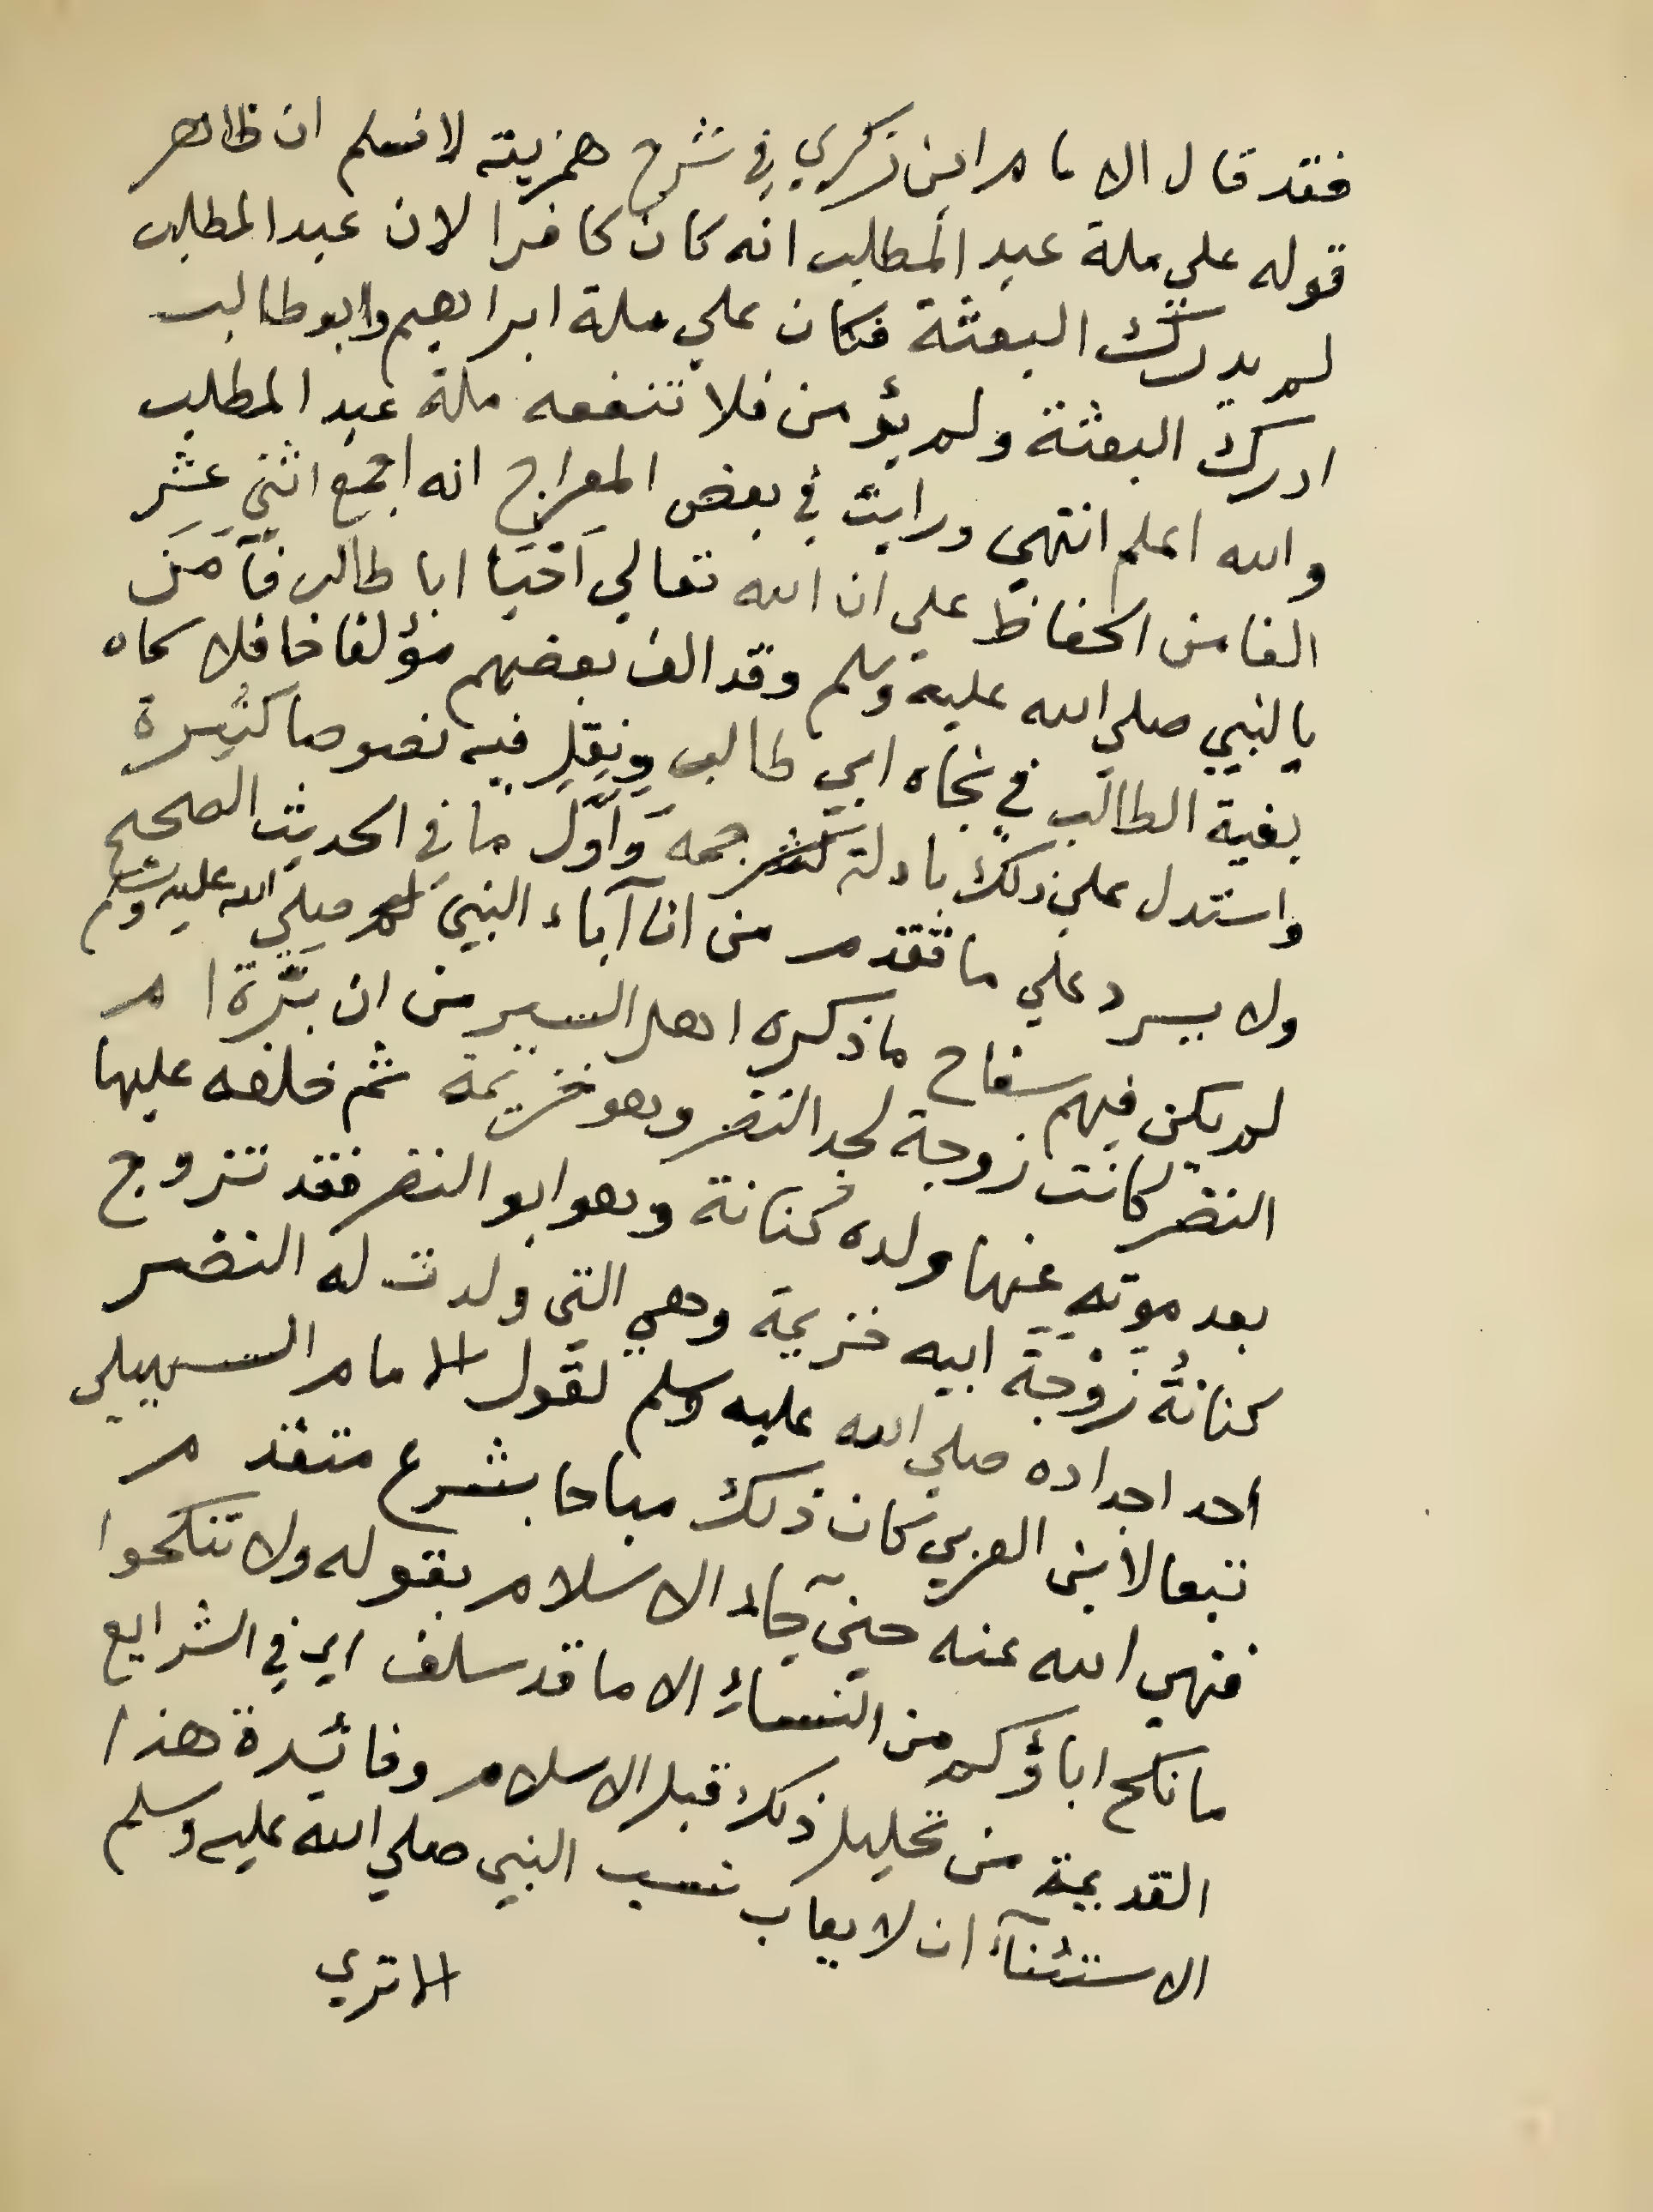 فقد قال الامام ابن زكري في شرح همزيته لا نسلم ان ظاهر
قوله علي ملة عبد المطلب انه كان كافرا لان عبد المطلب
لم يدرك البعثة فكان علي ملة ابراهيم وابو طالب
ادرك البعثة ولم يؤمن فلا تنفعه ملة عبد المطلب
والله اعلم انتهي ورايت في بعض المعراج انه اجمع اثني عشر
الفا من الحفاظ علي ان الله تعالي احيا ابا طالب فآمن
بالنبي صلي الله عليه وسلم وقد الف بعضهم مؤلفا حافلا سماه
بغية الطالب في نجاه ابي طالب ونقل فيه نصوصا كثيرة
واستدل علي ذلك بادلة جمه واول ما في الحديث الصحيح
ولا يرد علي ما تقدم من ان آباء النبي صلي الله عليه وسلم
لم يكن فيهم سفاح ما ذكره اهل السير من ان برة ام
النضر كانت زوجة لجد النضر وهو خزيمة ثم خلفه عليها
بعد موته عنها ولده كنانة وهو ابو النضر فقد تزوج
كنانة زوجة ابيه خزيمة وهي التي ولدت له النضر
احد اجداده صلي الله عليه وسلم لقول الامام السهيلي
تبعا لابن العربي كان ذلك مباحا بشرع متقدم
فنهي الله عنه حين جاء الاسلام بقوله ولا تنكحوا
ما نكح اباؤكم من النساء الا ما قد سلف اي في الشرايع
القديمة من تحليل ذلك قبل الاسلام وفائدة هذا
الاستثناء ان لا يعاب نسب النبي صلي الله عليه وسلم
الا تري